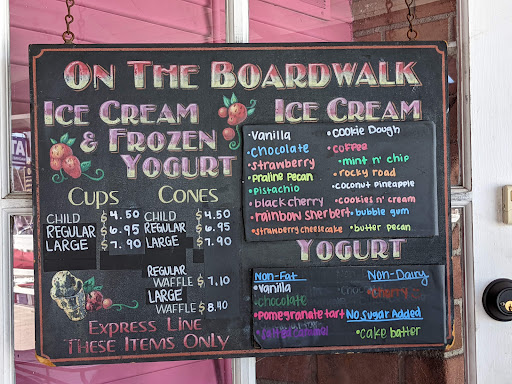 ON THE BOARDWALK
ICE CREAM
& FROZEN
YOGURT
CUPS
CHILD $4.50
REGULAR $6.95
LARGE $7.90
CONES
CHILD $4.50
REGULAR $6.95
LARGE $7.90
REGULAR
WAFFLE $7.10
LARGE
WAFFLE $8.40
EXPRESS LINE
THESE ITEMS ONLY
ICE CREAM
•Vanilla
•chocolate
•strawberry
•Praline Pecan
•Pistachio
•black cherry
•rainbow sherbert
•strawberry cheesecake
•COOKIE DOUGH
•coffee
•mint n' chip
•rocky road
•coconut pineapple
•cookies n' cream
•bubble gum
•butter pecan
YOGURT
Non-Fat
•Vanilla
•chocolate
•pomegranate tart
•salted caramel
Non-Dairy
•cherry
No Sugar Added
•cake batter